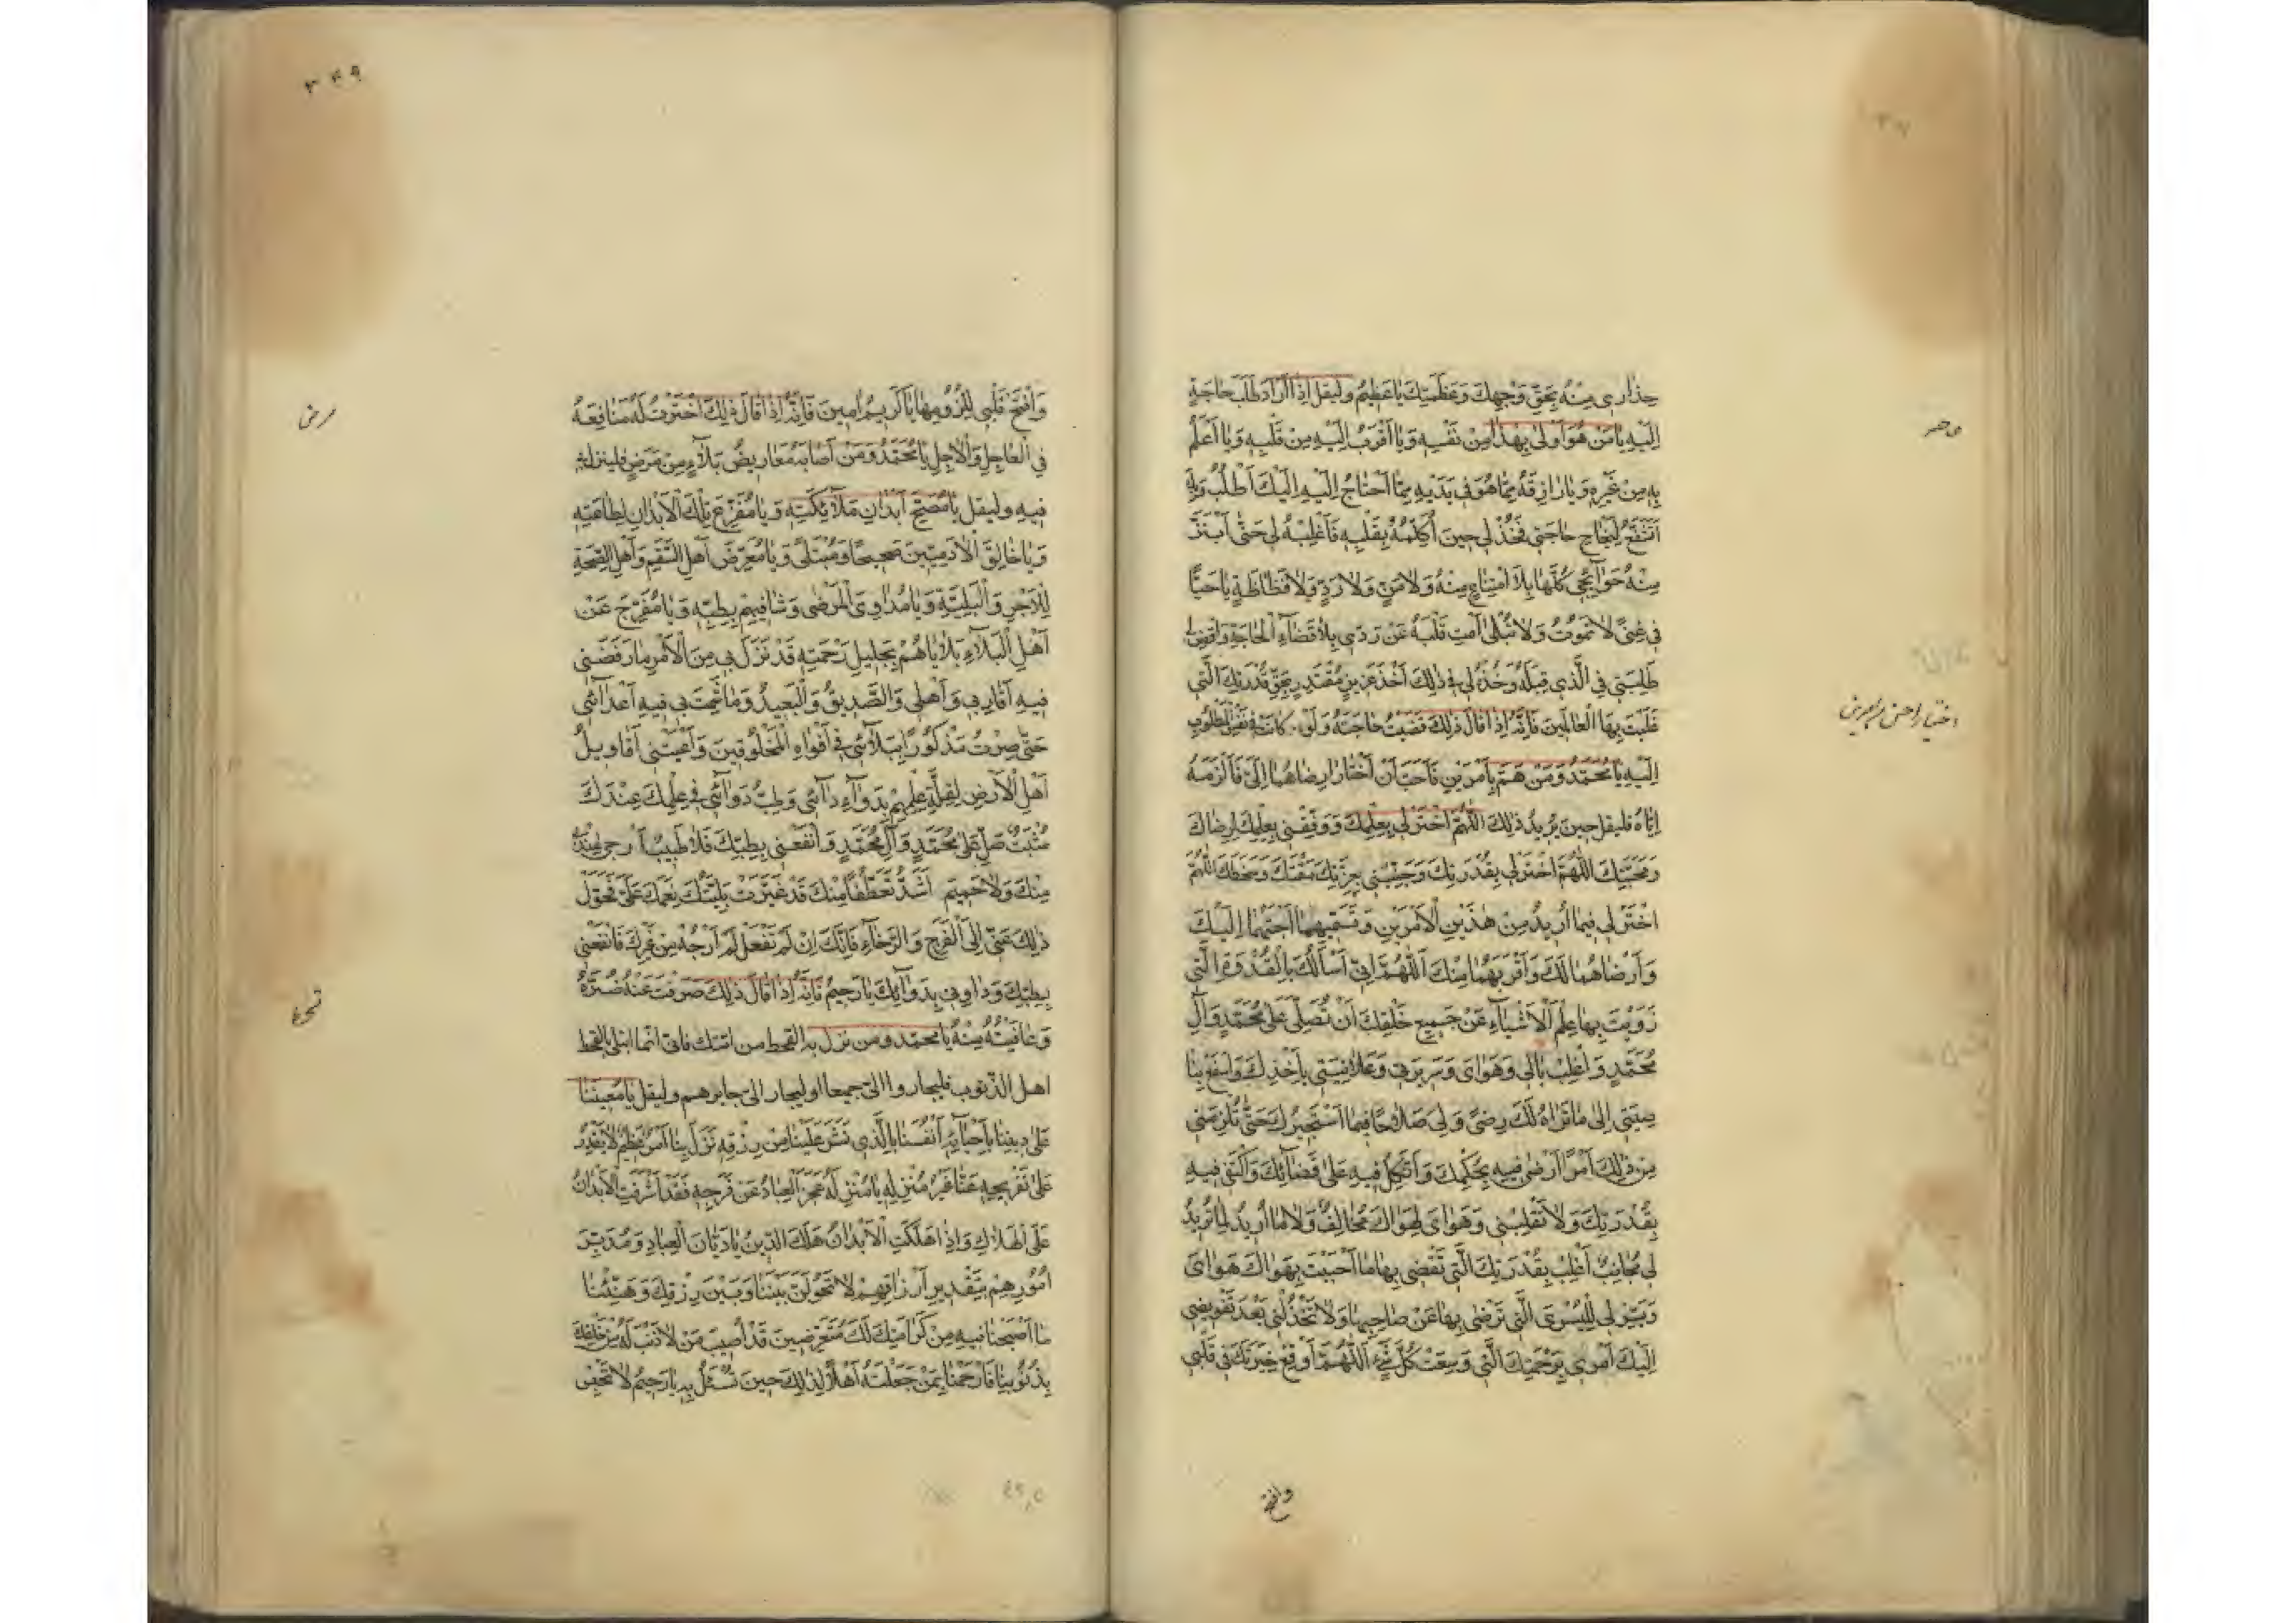 حِذَارِي مِنْهُ بِحَقِّ وَجْهِكَ وَعَظَمَتِكَ يَا عَظِيمُ وليقل اِذَا اَرَادَ طَلَبَ حَاجَةٍ
اِلَيْهِ يَا مَنْ هُوَ اَوْلىٰ بِهٰذَا مِنْ نَفْسِهِ وَيَا اَقْرَبُ اِلَيْهِ مِنْ قَلْبِهِ وَيَا اَعْلَمُ
بِهِ مِنْ غَيْرِهِ وَيَا رَازِقَهُ مِمَّا هُوَ فِي يَدَيْهِ مِمَّا اَحْتَاجُ اِلَيْهِ اِلَيْكَ اَطْلُبُ وَبِهِ
لِنَجَاحِ حَاجَتِي فَخُذْ لِي حِينَ اُكَلِّمُهُ بِقَلْبِهِ فَاَغْلِبْهُ لِي حَتّٰى اَبْتَزَّ
مِنْهُ حَوَائِجِي كُلَّهَا بِلَا امْتِنَاعٍ مِنْهُ وَلَا مَنٍّ وَلَا رَدٍّ وَلَا فَظَاظَةٍ يَا حَيًّا
فِي غِنًى لَا تَمُوتُ وَلَا تُبْلىٰ اَمِتْ قَلْبَهُ عَنْ رَدِّي بِلَا قَضَاءِ الْحَاجَةِ وَاقْضِ لِي
طَلِبَتِي فِي الَّذِي قِبَلَهُ وَخُذْهُ لِي فِي ذٰلِكَ اَخْذَ عَزِيزٍ مُقْتَدِرٍ بِحَقِّ قُدْرَتِكَ الَّتِي
غَلَبْتَ بِهَا الْعَالَمِينَ فَاِنَّهُ اِذَا قَالَ ذٰلِكَ قَضَيْتُ حَاجَتَهُ وَلَوْ كَانَتْ فِي نَفْسِ الْمَطْلُوبِ
اِلَيْهِ يَا مُحَمَّدُ وَمَنْ هَمَّ بِاَمْرَيْنِ فَاَحَبَّ اَنْ اَخْتَارَ اَرْضَاهُمَا اِلَيَّ فَاُلْزِمَهُ
اِيَّاهُ فليقل حِينَ يُرِيدُ ذٰلِكَ اَللّٰهُمَّ اخْتَرْ لِي بِعِلْمِكَ وَوَفِّقْنِي بِعِلْمِكَ لِرِضَاكَ
وَمَحَبَّتِكَ اَللّٰهُمَّ اخْتَرْ لِي بِقُدْرَتِكَ وَجَنِّبْنِي بِعِزَّتِكَ مَقْتَكَ وَسَخَطَكَ اَللّٰهُمَّ
اخْتَرْ لِي فِيمَا اُرِيدُ مِنْ هٰذَيْنِ الْاَمْرَيْنِ وَتُسَمِّيهِمَا اَحَبَّهُمَا اِلَيْكَ
وَاَرْضَاهُمَا لَكَ وَاَقْرَبَهُمَا مِنْكَ اَللّٰهُمَّ اِنِّي اَسْاَلُكَ بِالْقُدْرَةِ الَّتِي
زَوَيْتَ بِهَا عِلْمَ الْاَشْيَاءِ عَنْ جَمِيعِ خَلْقِكَ اَنْ تُصَلِّيَ عَلىٰ مُحَمَّدٍ وَآلِ
مُحَمَّدٍ وَاغْلِبْ بَالِي وَهَوَايَ وَسَرِيرَتِي وَعَلَانِيَتِي بِاَخْذِكَ وَاسْفَعْ بِنَا
صِيَتِي اِلىٰ مَا تَرَاهُ لَكَ رِضًى وَلِي صَلَاحًا فِيمَا اَسْتَخِيرُكَ حَتّٰى تُلْزِمَنِي
مِنْ ذٰلِكَ اَمْرًا اَرْضىٰ فِيهِ بِحُكْمِكَ وَاَتَّكِلُ فِيهِ عَلىٰ قَضَائِكَ وَاَكْتَفِي فِيهِ
بِقُدْرَتِكَ وَلَا تَقْلِبْنِي وَهَوَايَ لِهَوَاكَ مُخَالِفٌ وَلَا مَا اُرِيدُ لِمَا تُرِيدُ
لِي مُجَانِبٌ اَغْلِبْ بِقُدْرَتِكَ الَّتِي تَقْضِي بِهَا مَا اَحْبَبْتَ بِهَوَاكَ هَوَايَ
وَيَسِّرْ لِي لِلْيُسْرَى الَّتِي تَرْضىٰ بِهَا عَنْ صَاحِبِهَا وَلَا تَخْذُلْنِي بَعْدَ تَفْوِيضِي
اِلَيْكَ اَمْرِي بِرَحْمَتِكَ الَّتِي وَسِعَتْ كُلَّ شَيْءٍ اَللّٰهُمَّ اَوْقِعْ خِيَرَتَكَ فِي قَلْبِي
وافتح
۳۴۹
وَافْتَحْ قَلْبِي لِلُزُومِهَا يَا كَرِيمُ اٰمِينَ فَاِنَّهُ اِذَا قَالَ ذٰلِكَ اخْتَرْتُ لَهُ مَنَافِعَهُ
فِي الْعَاجِلِ وَالْاٰجِلِ يَا مُحَمَّدُ وَمَنْ اَصَابَهُ مَعَارِيضُ بَلَاءٍ مِنْ مَرَضٍ فلينزل بي
فِيهِ وليقل يَا مُصِحَّ اَبْدَانِ مَلَائِكَتِهِ وَيَا مُفَرِّغَ تِلْكَ الْاَبْدَانِ لِطَاعَتِهِ
وَيَا خَالِقَ الْاٰدَمِيِّينَ صَحِيحًا وَمُبْتَلًى وَيَا مُعَرِّضَ اَهْلِ السُّقْمِ وَاَهْلِ الصِّحَّةِ
لِلْاَجْرِ وَالْبَلِيَّةِ وَيَا مُدَاوِيَ الْمَرْضىٰ وَشَافِيَهُمْ بِطِبِّهِ وَيَا مُفَرِّجَ عَنْ
اَهْلِ الْبَلَاءِ بَلَايَاهُمْ بِجَلِيلِ رَحْمَتِهِ قَدْ نَزَلَ بِي مِنَ الْاَمْرِ مَا رَفَضَنِي
فِيهِ اَقَارِبِي وَاَهْلِي وَالصَّدِيقُ وَالْبَعِيدُ وَمَا شَمِتَ بِي فِيهِ اَعْدَائِي
حَتّٰى صِرْتُ مَذْكُورًا بِبَلَائِي فِي اَفْوَاهِ الْمَخْلُوقِينَ وَاَعْيَتْنِي اَقَاوِيلُ
اَهْلِ الْاَرْضِ لِقِلَّةِ عِلْمِهِمْ بِدَوَاءِ دَائِي وَطِبُّ دَوَائِي فِي عِلْمِكَ عِنْدَكَ
مُثْبَتٌ صَلِّ عَلىٰ مُحَمَّدٍ وَآلِ مُحَمَّدٍ وَانْفَعْنِي بِطِبِّكَ فَلَا طَبِيبَ اَرْجىٰ عِنْدِي
مِنْكَ وَلَا حَمِيمَ اَشَدُّ تَعَطُّفًا مِنْكَ قَدْ غَيَّرَتْ بَلِيَّتُكَ نِعَمَكَ عَلَيَّ فَحَوِّلْ
ذٰلِكَ عَنِّي اِلَى الْفَرَجِ وَالرَّخَاءِ فَاِنَّكَ اِنْ لَمْ تَفْعَلْ لَمْ اَرْجُهُ مِنْ غَيْرِكَ فَانْفَعْنِي
بِطِبِّكَ وَدَاوِنِي بِدَوَائِكَ يَا رَحِيمُ فَاِنَّهُ اِذَا قَالَ ذٰلِكَ صَرَفْتُ عَنْهُ ضُرَّهُ
وَعَافَيْتُهُ مِنْهُ يا محمد ومن نزل به القحط من امتك فاني انما ابتلي بالقحط
اهل الذنوب فليجاروا الي جميعا او ليجار الي جابرهم وليقل يَا مُعِينَنَا
عَلىٰ دِينِنَا بِاِحْيَائِهِ اَنْفُسَنَا بِالَّذِي نَشَرَ عَلَيْنَا مِنْ رِزْقِهِ نَزَلَ بِنَا اَمْرٌ عَظِيمٌ لَا يَقْدِرُ
عَلىٰ تَفْرِيجِهِ عَنَّا غَيْرُ مُنْزِلِهِ يَا مُنْزِلَهُ عَجَزَ الْعِبَادُ عَنْ فَرَجِهِ فَقَدْ اَشْرَفَتِ الْاَبْدَانُ
عَلَى الْهَلَاكِ وَاِذَا هَلَكَتِ الْاَبْدَانُ هَلَكَ الدِّينُ يَا دَيَّانَ الْعِبَادِ وَمُدَبِّرَ
اُمُورِهِمْ بِتَقْدِيرِ اَرْزَاقِهِمْ لَا تَحُولَنَّ بَيْنَنَا وَبَيْنَ رِزْقِكَ وَهَنِّئْنَا
مَا اَصْبَحْنَا فِيهِ مِنْ كَرَامَتِكَ لَكَ مُتَعَرِّضِينَ قَدْ اُصِيبَ مَنْ لَا ذَنْبَ لَهُ مِنْ خَلْقِكَ
بِذُنُوبِنَا فَارْحَمْنَا بِمَنْ جَعَلْتَهُ اَهْلًا لِذٰلِكَ حِينَ تُسْئَلُ بِهِ يَا رَحِيمُ لَا تَحْبِسْ
مرض